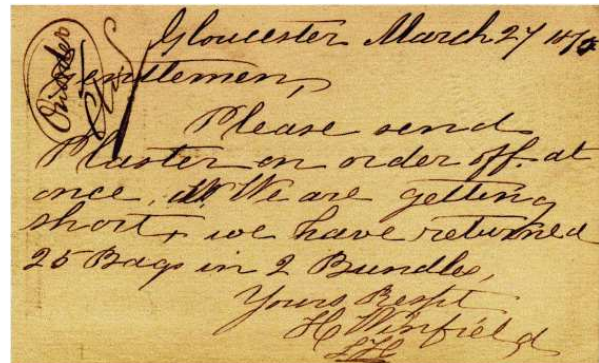 Gloucester March 27
Gentlemen,
Please send
Plaster on order off. at
once, We are getting
short, we have returned
25 Bags in 2 Bundles,
Yours Respt
H Winfield